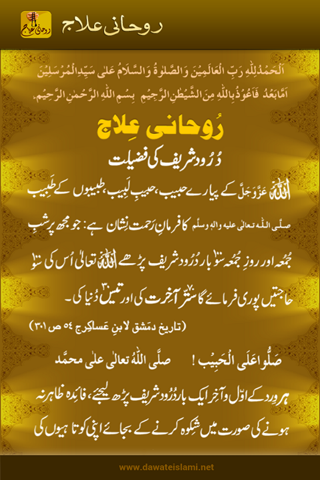 روحانی علاج
اَلْحَمْدُلِلّٰهِ رَبِّ الْعَالَمِيْنَ وَالصَّلٰوةُ وَالسَّلَامُ عَلٰى سَيِّدِ الْمُرْسَلِيْنَ
اَمَّا بَعْدُ فَاَعُوْذُ بِاللّٰهِ مِنَ الشَّيْطٰنِ الرَّجِيْمِ بِسْمِ اللّٰهِ الرَّحْمٰنِ الرَّحِيْمِ.
رُوحانی عِلاج
دُرُود شریف کی فضیلت
اللہ عَزَّوَجَلَّ کے پیارے حبیب، حبیبِ لبیب، طبیبوں کے طبیب
صلَّی اللہ تعالٰی علیہ واٰلہٖ وسلَّم کا فرمانِ رَحمت نِشان ہے: جو مجھ پر شبِ
جُمُعہ اور روزِ جُمُعہ سو بار دُرُود شریف پڑھے اللہ تعالٰی اُس کی سو
حاجتیں پوری فرمائے گا ستّر آخرت کی اور تیس دُنیا کی۔
(تاریخ دمشق لابنِ عَساکِر ج ٥٤ ص ٣٠١)
صَلُّوا عَلَی الْحَبِیْب ! صلَّی اللہُ تعالٰی علٰی محمَّد
ہر وِرد کے اوّل و آخر ایک بار دُرُود شریف پڑھ لیجئے، فائدہ ظاہر نہ
ہونے کی صورت میں شکوہ کرنے کے بجائے اپنی کوتاہیوں کی
www.dawateislami.net